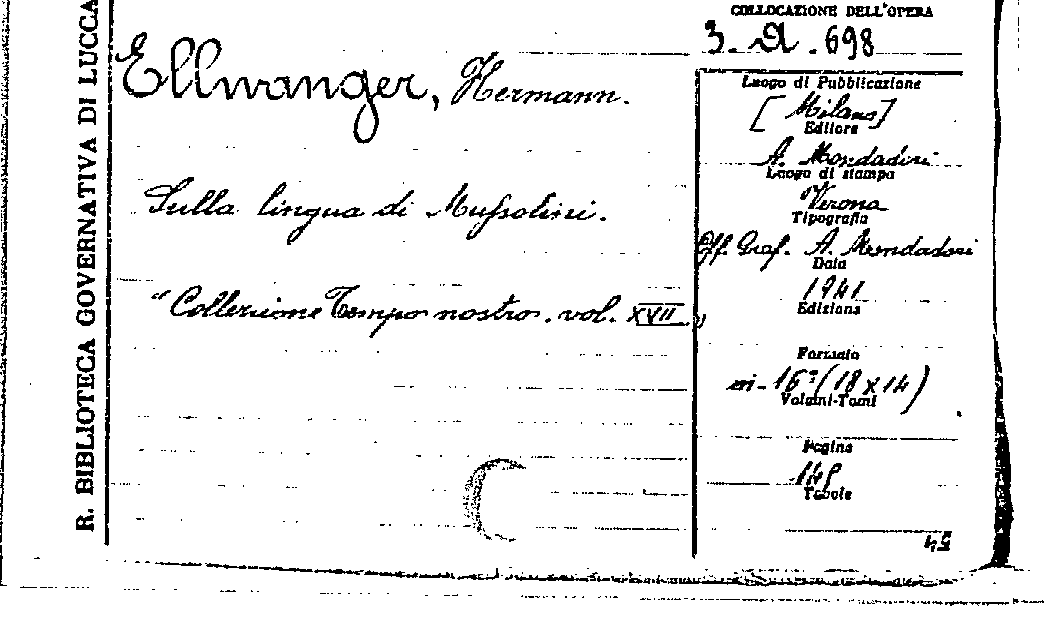 R. BIBLIOTECA GOVERNATIVA DI LUCCA
COLLOCAZIONE DELL'OPERA
3. A. 698
Ellwanger, Hermann.
Sulla lingua di Mussolini.
"Collezione Tempo nostro. vol. XVII"
Luogo di Pubblicazione
[Milano]
Editore
A. Mondadori
Luogo di stampa
Verona
Tipografia
Off. Graf. A. Mondadori
Data
1941
Edizione
Formato
in-16° (18x14)
Volumi-Tomi
Pagine
Tavole